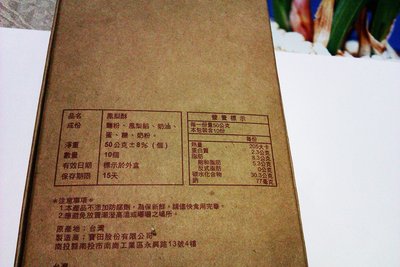 品名 鳳梨酥
成份 麵粉、鳳梨餡、奶油、
蛋、糖、奶粉。
淨重 50公克±8%（個）
數量 10個
有效日期 標示於外盒
保存期限 15天
營養標示
每一份量50公克
本包裝含10份
每份
熱量 205大卡
蛋白質 2.3公克
脂肪 8.3公克
飽和脂肪 5.3公克
反式脂肪 0公克
碳水化合物 30.3公克
鈉 77毫克
*注意事項*
1.本產品不添加防腐劑，為保新鮮，請儘快食用完畢。
2.應避免放置潮溼高溫或曝曬之場所。
原產地：台灣
製造商：寶田股份有限公司
南投縣南投市南崗工業區永興路13號4樓